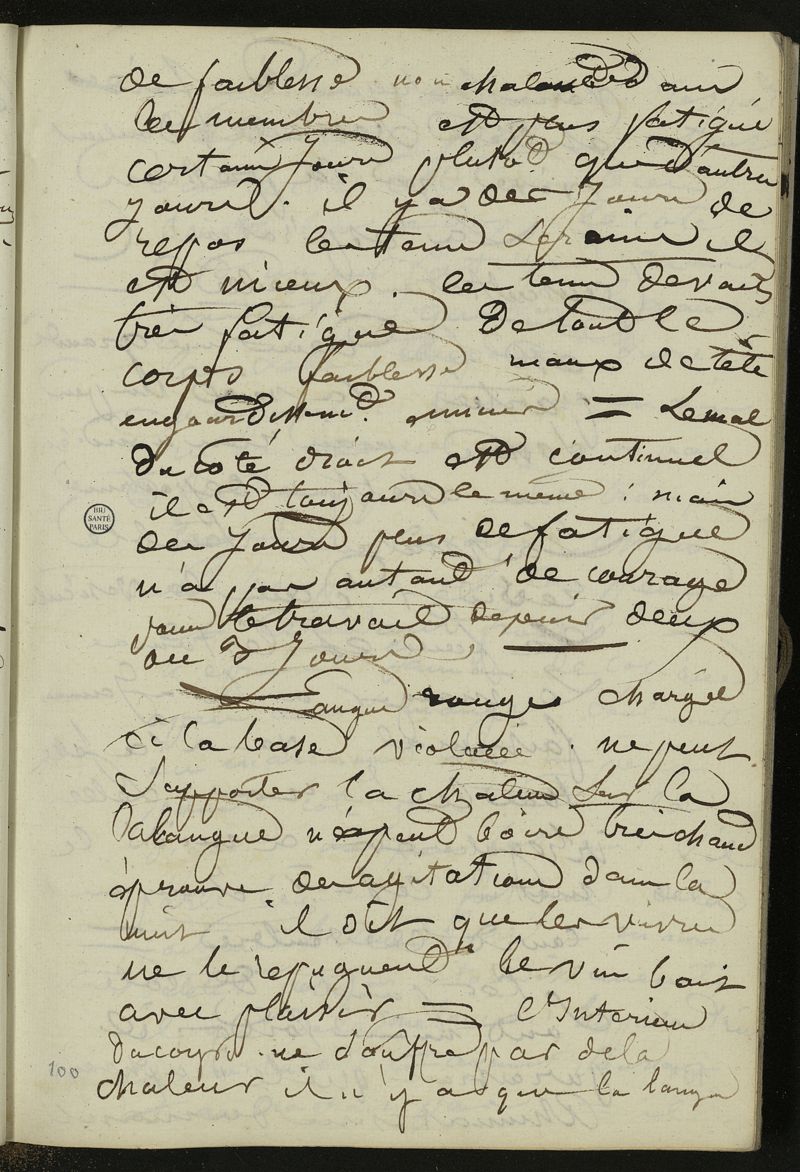 de faiblesse nonchalance dans
les membres est plus fatigué
certains Jours plutot que d'autres
Jours. il y a des Jours de
repos les tems Sereins il
est mieux. les tems devants
très fatigué de tout le
corps faiblesse maux de tête
engourdissement. = Le mal
du coté droit est continuel
il est toujours le meme : mais
des Jours plus de fatigue
n'a pas autant de courage
pour le travail depuis deux
ou 3 Jours. —
Langue rouge chargée
à la base violacée. ne peut
Supporter la chaleur Sur la
la langue ne peut boire très chaud
éprouve des agitations dans la
nuit il dit que les vivres
ne le repugnent le vin boit
avec plaisir = L'Interieur
du corps. ne souffre pas de la
chaleur il n'y a que la langue
100
BIU
SANTÉ
PARIS